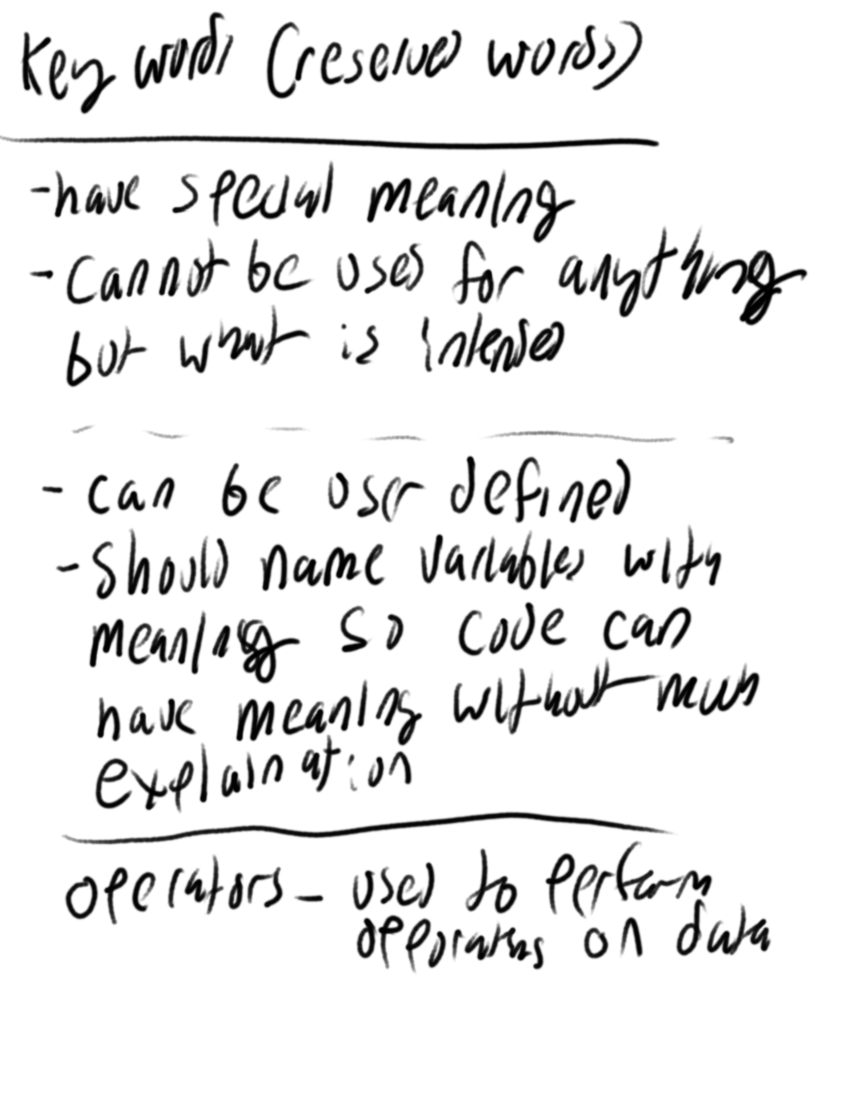 Key words (reserved words)
- have special meaning
- Cannot be used for anything
but what is intended
- can be user defined
- Should name variables with
meaning so code can
have meaning without much
explaination
operators - used to perform
opporations on data